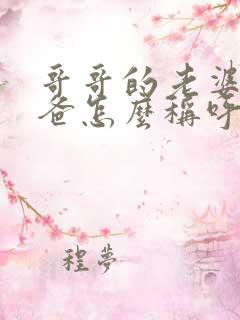 哥哥的老婆
爸怎麼稱呼
程夢